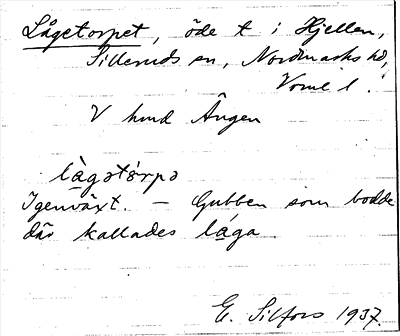 Lågetorpet, öde t i Hjellen,
Silleruds sn, Nordmarks hd,
Vrml l.
V hmd Ängen
làgatórpə
Igenväxt. – Gubben som bodde
där kallades låga
E. Silfors 1937.